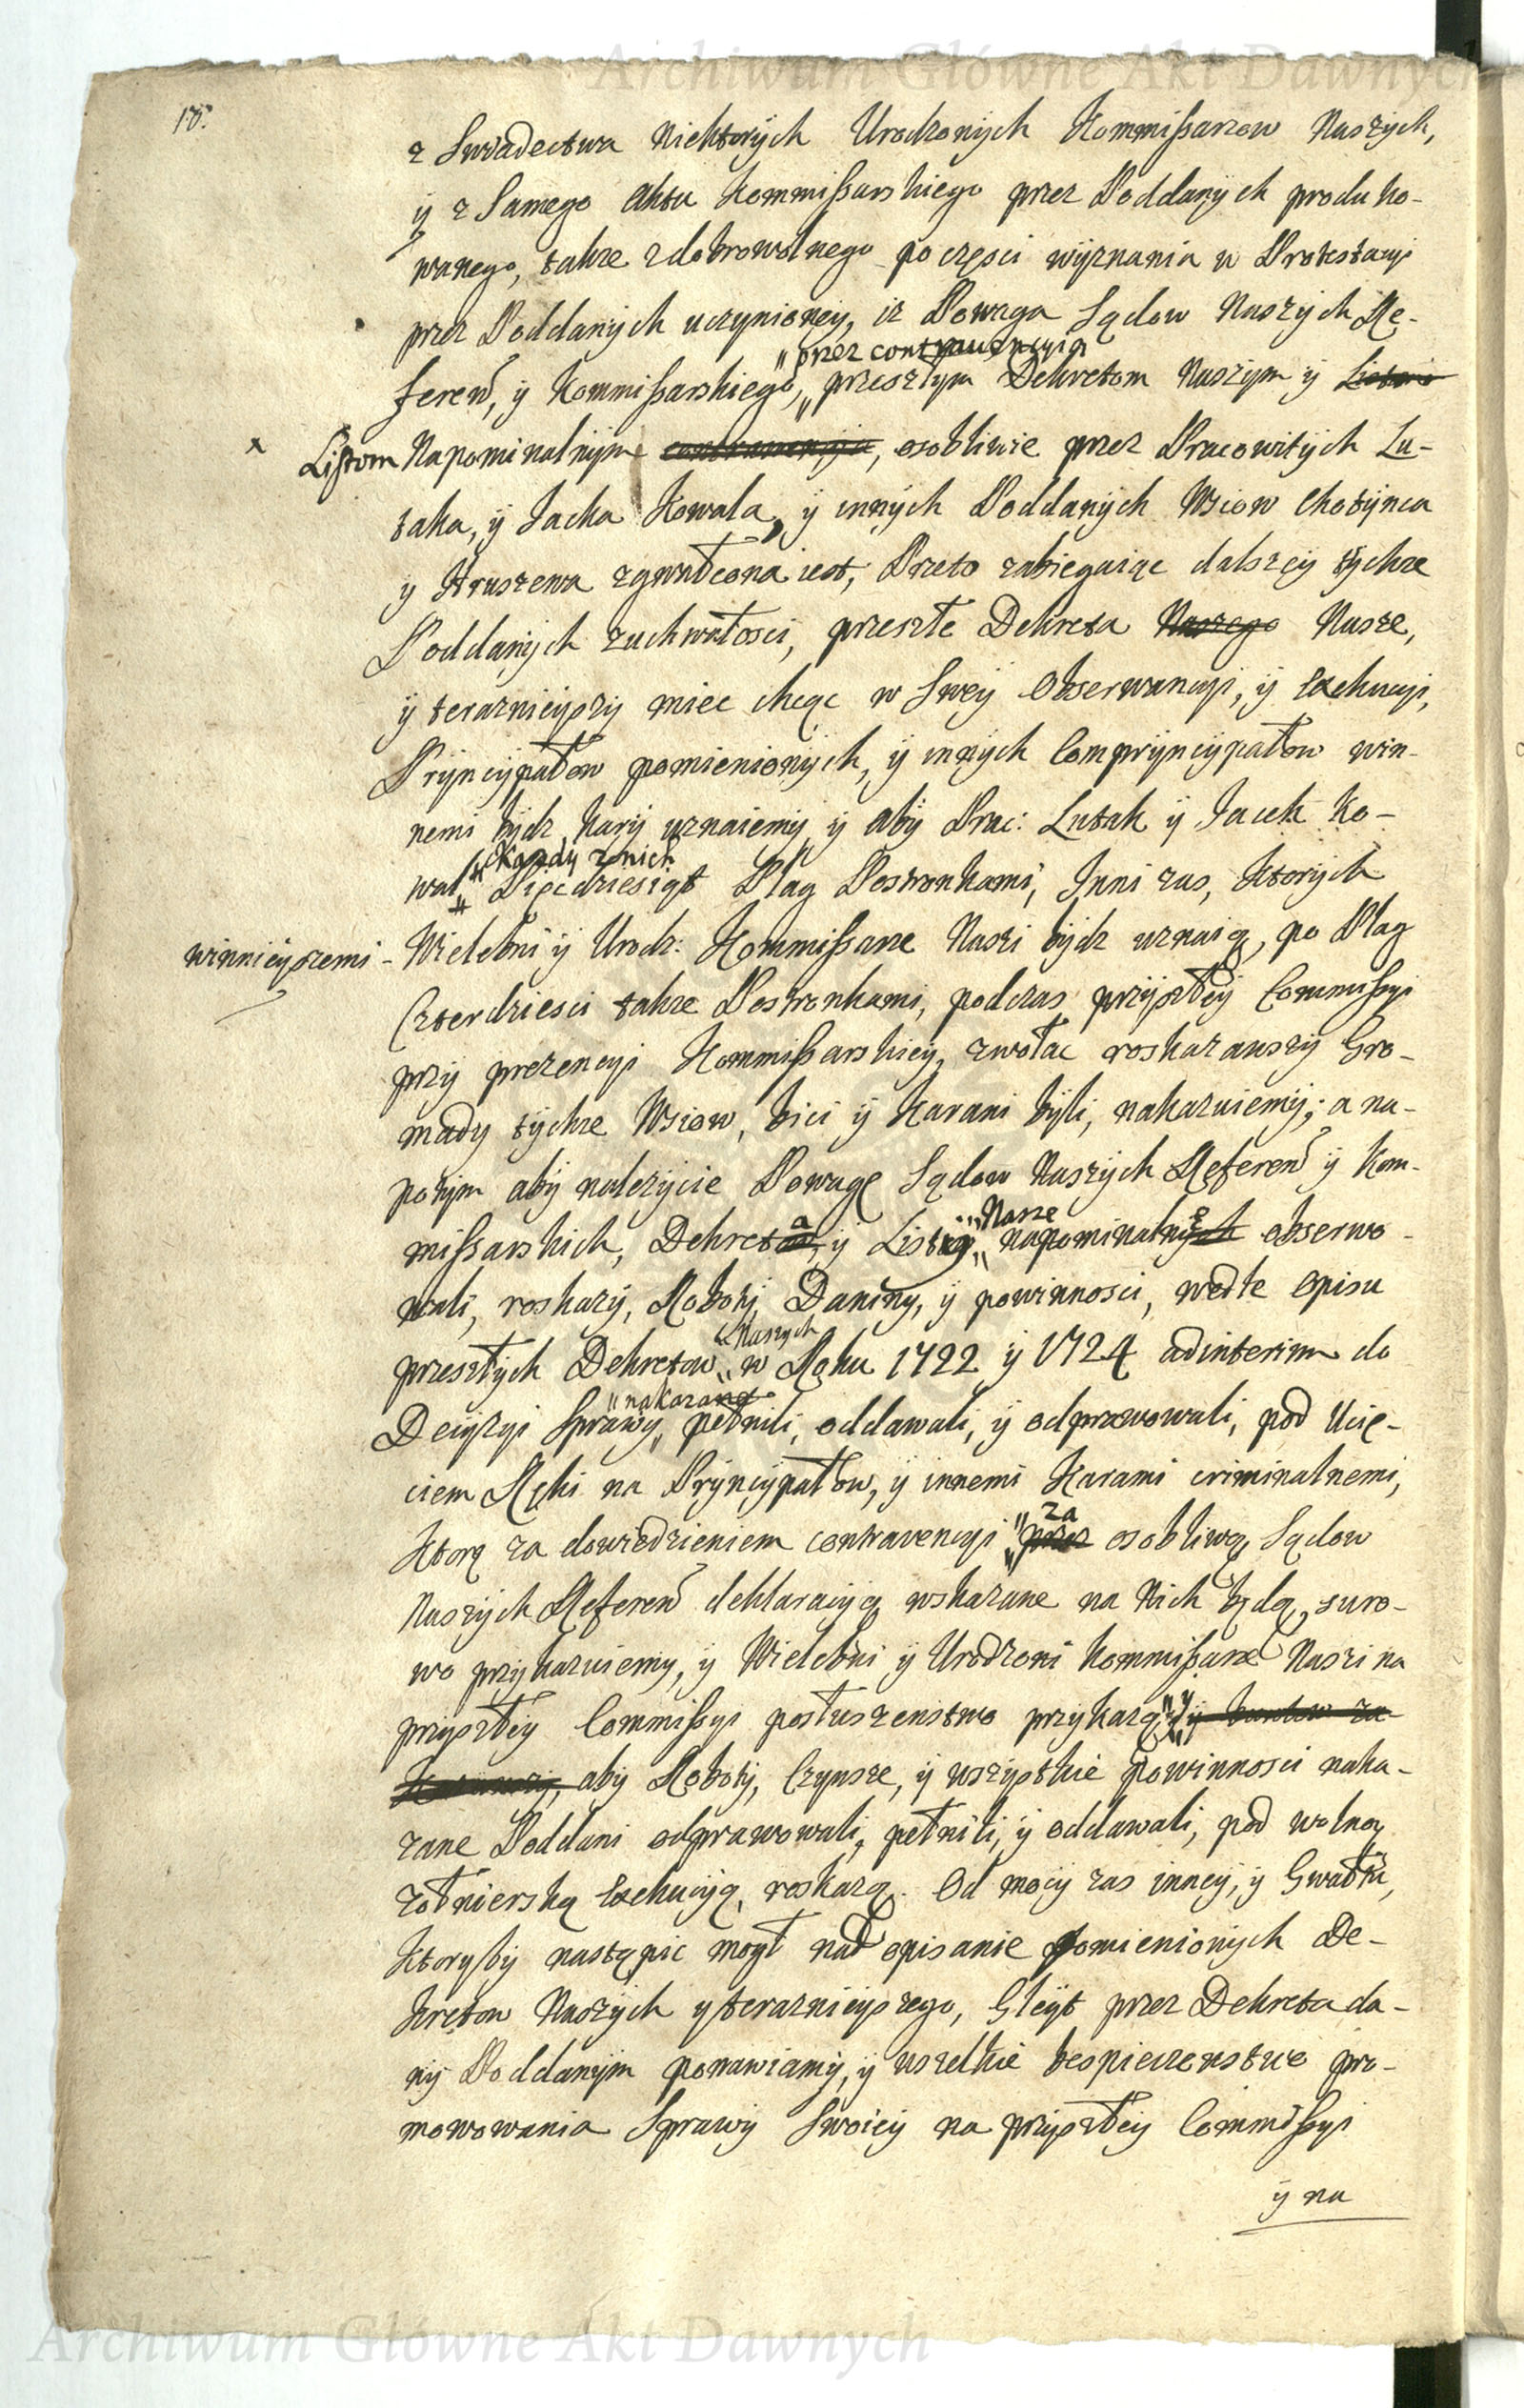 Archiwum Główne Akt Dawnych
18.
z Swiadectwa Niektorÿch Urodzonÿch Kommißarzow Naszÿch,
ÿ z Samego Aktu Kommißarskiego przez Poddanÿch produko-
wanego, także z dobrowolnego po częsci wÿznania w Protestacÿi
przez Poddanÿch uczÿnioneÿ, iż Powaga Sądow Naszÿch Re-
"przez contrawencyią
feren̄, ÿ Kommißarskiego, "przeszłÿm Dekretom Naszÿm ÿ Listom
x Listom Napominalnÿm contrawencÿia, osobliwie przez Pracowitÿch Lu-
taka, ÿ Jacka Kowala, ÿ innÿch Poddanÿch Wsiow Chotÿnca
ÿ Hruszewa zgwałcona iest, Przeto zabiegaiąc dalszeÿ tÿchże
Poddanÿch zuchwałosci, przeszłe Dekreta Naszego Nasze,
ÿ teraznieÿszÿ miec chcąc w Sweÿ Obserwancÿi, ÿ Exekucÿi,
Prÿncÿpałow pomienionÿch, ÿ innÿch Comprÿncÿpałow win-
nemi bÿdz karÿ uznaiemÿ ÿ abÿ Prac: Lutak ÿ Jacek Ko-
Kazdy z nich
wal, " Pięcdziesiąt Plag Postronkami, Inni zas, ktorÿch
winnieyszemi - Wielebni ÿ Urodz: Kommißarze Nasi bÿdz uznaią, po Plag
Czterdziesci także Postronkami, podczas przÿszłeÿ Commißÿi
przÿ prezencÿi Kommißarskieÿ, zwołac roskazawszÿ Gro-
madÿ tÿchże Wsiow, bici ÿ karani bÿli, nakazuiemÿ; a na-
potÿm abÿ należÿcie Powagę Sądow Naszÿch Referen̄ ÿ Kom-
a "Nasze e
mißarskich, Dekreta, ÿ Listÿ, "napominalnÿch obserwo-
wali, roskazÿ, Robotÿ, Daninÿ, ÿ powinnosci, wedle Opisu
Naszych
przeszłÿch Dekretow " w Roku 1722 ÿ 1724 ad interim do
"nakazane
Decÿzÿi Sprawÿ, " pełnili, oddawali, ÿ odprawowali, pod Ucię-
ciem Ręki na Prÿncÿpałow, ÿ innemi Karami criminalnemi,
"za
ktorą za dowiedzieniem contravencÿi "przez osobliwą Sądow
Naszÿch Referen̄ deklaracÿą wskazane na Nich będą, suro-
wo przÿkazuiemÿ, ÿ Wielebni ÿ Urodzoni Kommißarze Nasi na
"ÿ
przÿszłeÿ Commißÿi posłuszenstwo przÿkażą, " ÿ buntow za-
abÿ Robotÿ, Czÿnsze, ÿ wszÿstkie Powinnosci naka-
zane Poddani odprawowali, pełnili, ÿ oddawali, pod wolną
żołnierską Exekucÿą, roskażą. Od mocÿ zas inneÿ, ÿ Gwałtu,
ktorÿbÿ nastąpic mogł nad opisanie pomienionÿch De-
kretow Naszÿch ÿ teraznieÿszego, Gleÿt przez Dekreta da-
nÿ Poddanÿm ponawiamÿ, ÿ wszelkie bespieczenstwo pro-
mowowania Sprawÿ Swoieÿ na przÿszłeÿ Commißÿi
ÿ na
Archiwum Główne Akt Dawnych